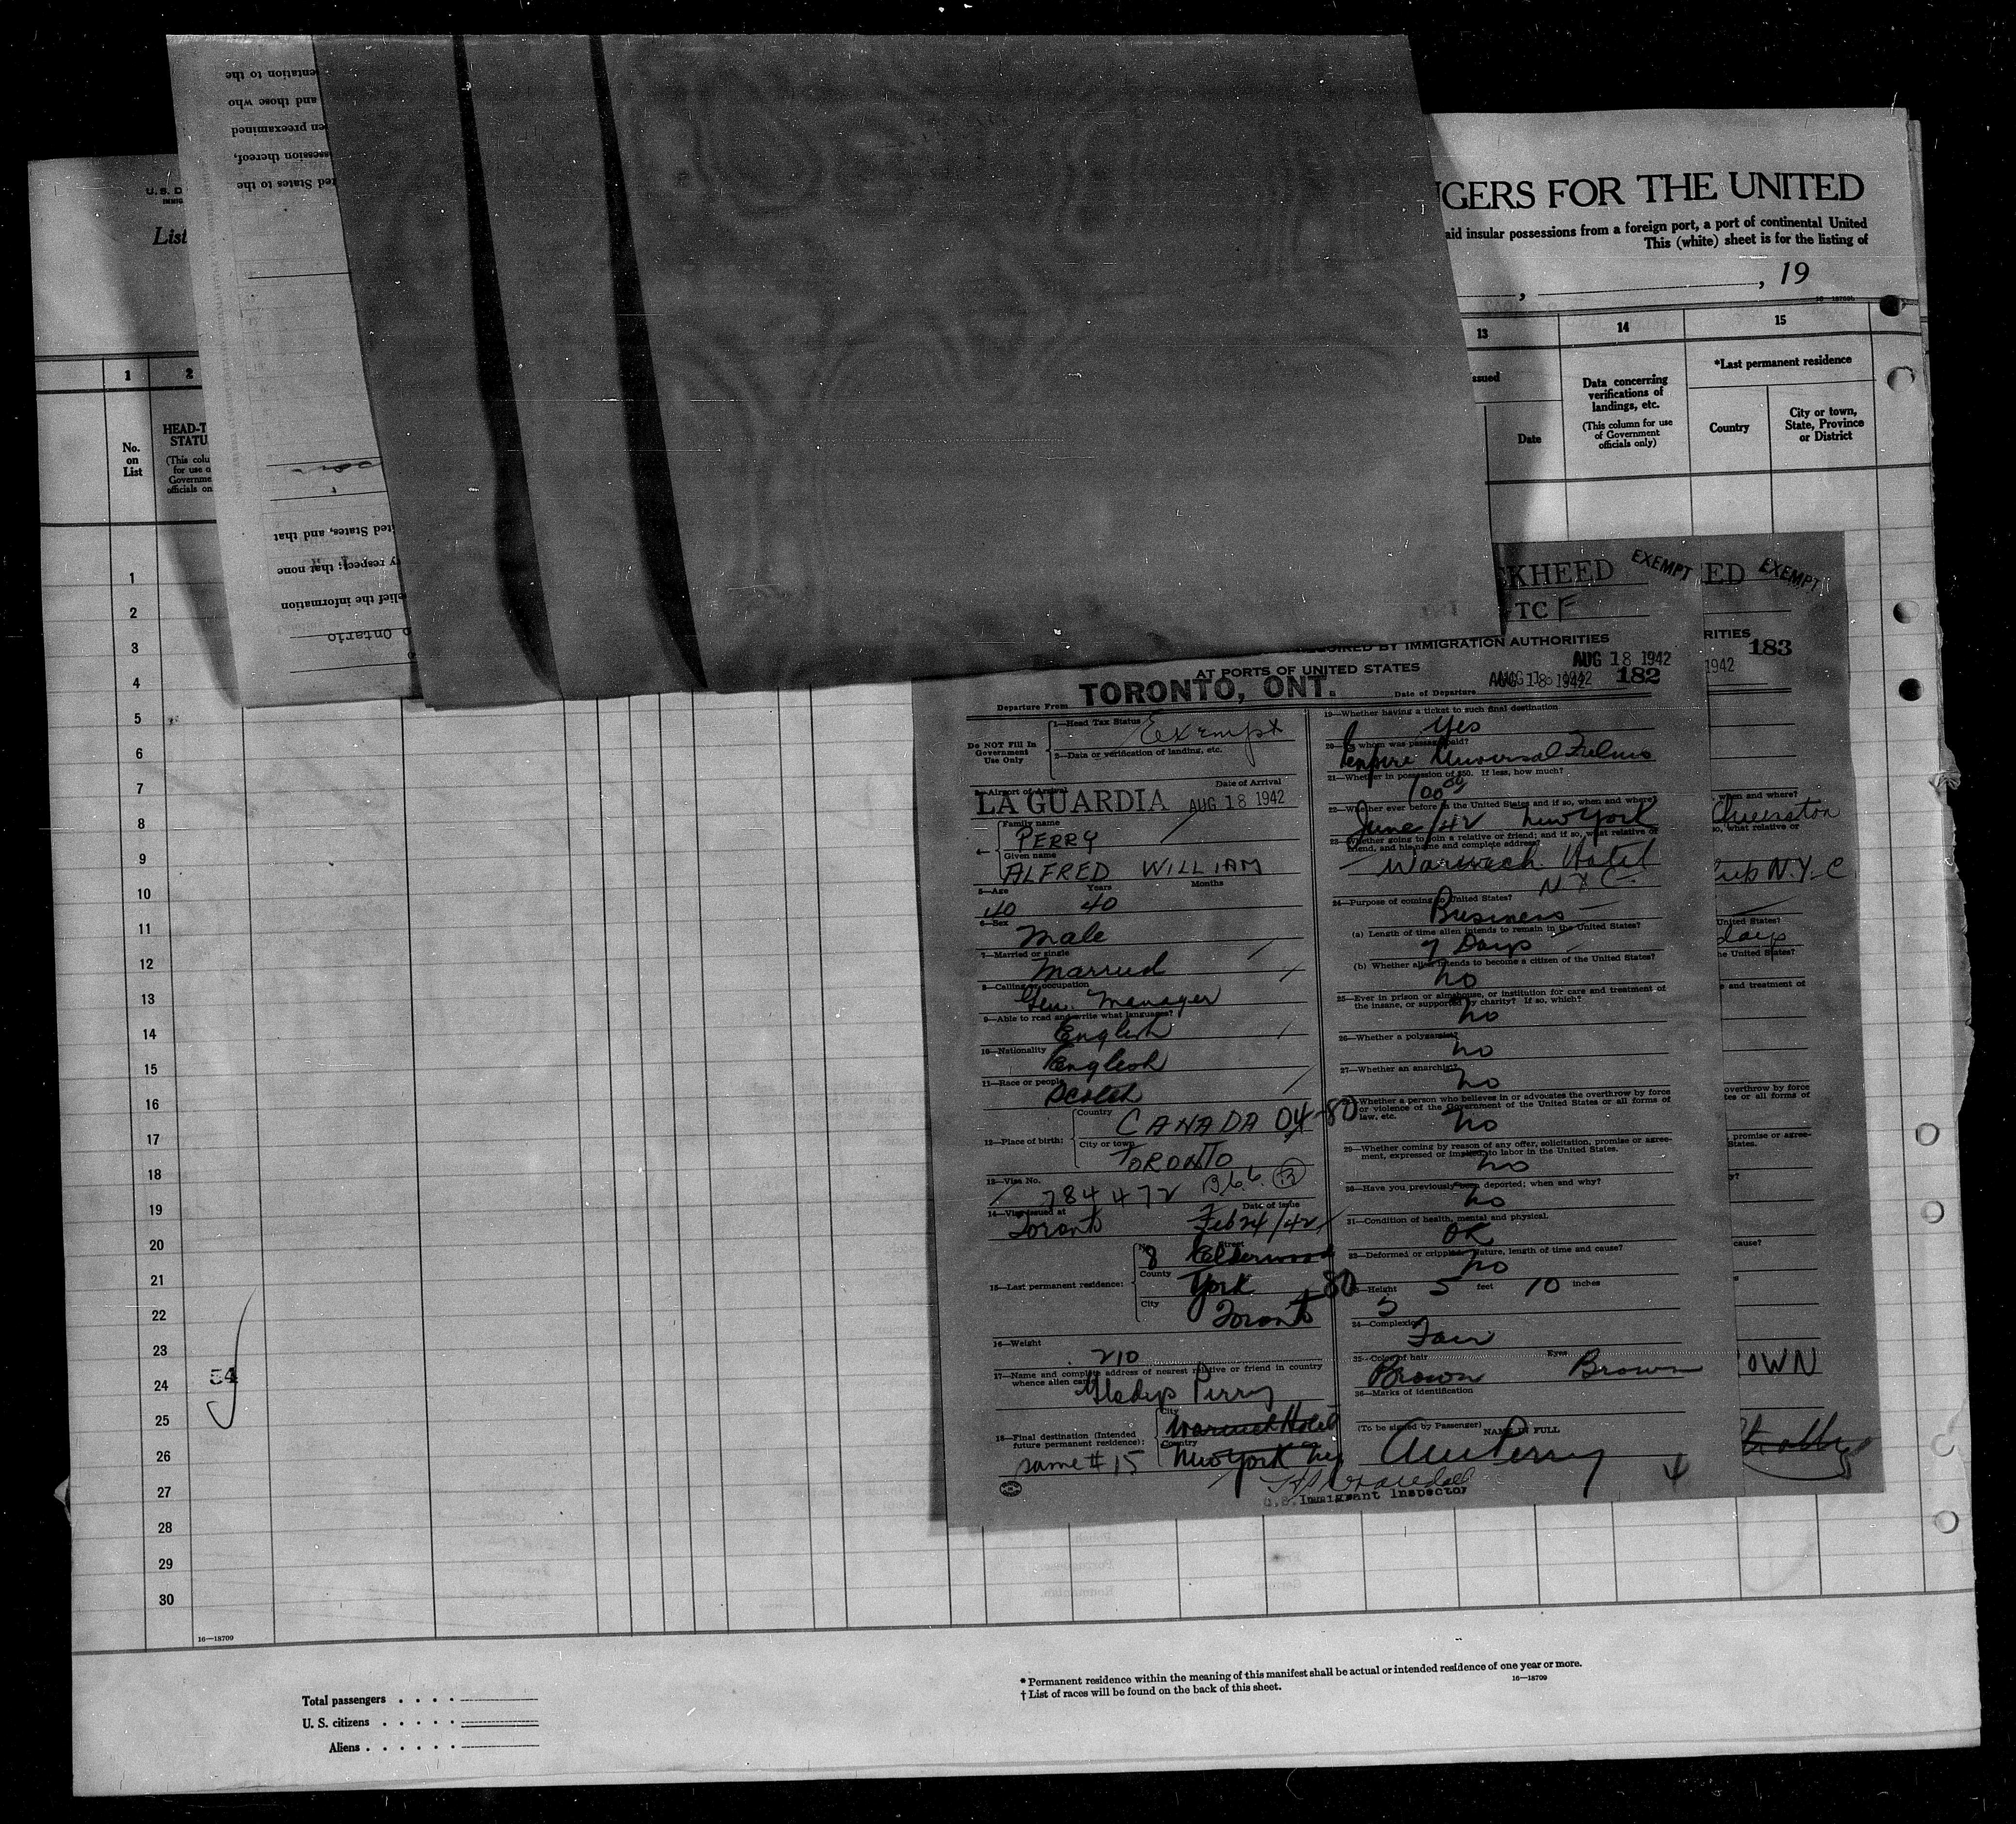 U. S. D
IMMIG
List
entation to the
and those who
en preexamined
ssession thereof,
ted States to the
ited States, and that
y respect; that none
elief the information
o Ontario
NGERS FOR THE UNITED
aid insular possessions from a foreign port, a port of continental United
This (white) sheet is for the listing of
, , 19
1 2 13 14 15
No. on List
HEAD-T
STATU
(This colu
for use o
Governme
officials on
ssued
Date
Data concerning verifications of landings, etc.
(This column for use of Government officials only)
*Last permanent residence
Country
City or town, State, Province or District
1
2
3
4
5
6
7
8
9
10
11
12
13
14
15
16
17
18
19
20
21
22
23
24
25
26
27
28
29
30
54
16—18709
CKHEED EXEMPT
TC F
REQUIRED BY IMMIGRATION AUTHORITIES
AT PORTS OF UNITED STATES
AUG 18 1942
Departure From TORONTO, ONT. Date of Departure AUG 18 1942 182
Do NOT Fill In Government Use Only
1—Head Tax Status Exempt
2—Data or verification of landing, etc.
3—Airport of Arrival Date of Arrival
LA GUARDIA AUG 18 1942
Family name
PERRY
Given name
ALFRED WILLIAM
5—Age Years Months
40 40
6—Sex
Male
7—Married or single
Married
8—Calling or occupation
Gen. Manager
9—Able to read and write what languages?
English
10—Nationality
English
11—Race or people
Scotch
12—Place of birth:
Country
CANADA 04-80
City or town
TORONTO
13—Visa No.
784472
14—Visa issued at Date of issue
Toronto Feb 24/42
15—Last permanent residence:
No. Street
8 Elderwood
County
York 80
City
Toronto
16—Weight
210
17—Name and complete address of nearest relative or friend in country whence alien came
Gladys Perry
18—Final destination (Intended future permanent residence):
City
Warwick Hotel
Country
New York Ny
same # 15
19—Whether having a ticket to such final destination
Yes
20—By whom was passage paid?
Empire Universal Films
21—Whether in possession of $50. If less, how much?
100.00
22—Whether ever before in the United States and if so, when and where?
June/42 New York
23—Whether going to join a relative or friend; and if so, what relative or friend, and his name and complete address?
Warwick Hotel
NYC.
24—Purpose of coming to United States?
Business
(a) Length of time alien intends to remain in the United States?
7 Days
(b) Whether alien intends to become a citizen of the United States?
no
25—Ever in prison or almshouse, or institution for care and treatment of the insane, or supported by charity? If so, which?
no
26—Whether a polygamist?
no
27—Whether an anarchist?
no
28—Whether a person who believes in or advocates the overthrow by force or violence of the Government of the United States or all forms of law, etc.
no
29—Whether coming by reason of any offer, solicitation, promise or agreement, expressed or implied, to labor in the United States.
no
30—Have you previously been deported; when and why?
no
31—Condition of health, mental and physical.
OK
32—Deformed or crippled. Nature, length of time and cause?
no
33—Height 5 feet 10 inches
34—Complexion
Fair
35—Color of hair Eyes
Brown Brown
36—Marks of identification
(To be signed by Passenger) NAME IN FULL
AWPerry
U.S. Immigrant Inspector
ED EXEMPT
RITIES
1942 183
when and where?
so, what relative or
N.Y.C
United States?
days
he United States?
e and treatment of
overthrow by force
tes or all forms of
promise or agree-
States.
y?
cause?
OWN
* Permanent residence within the meaning of this manifest shall be actual or intended residence of one year or more.
† List of races will be found on the back of this sheet.
16—18709
Total passengers . . . .
U. S. citizens . . . . .
Aliens . . . . . .